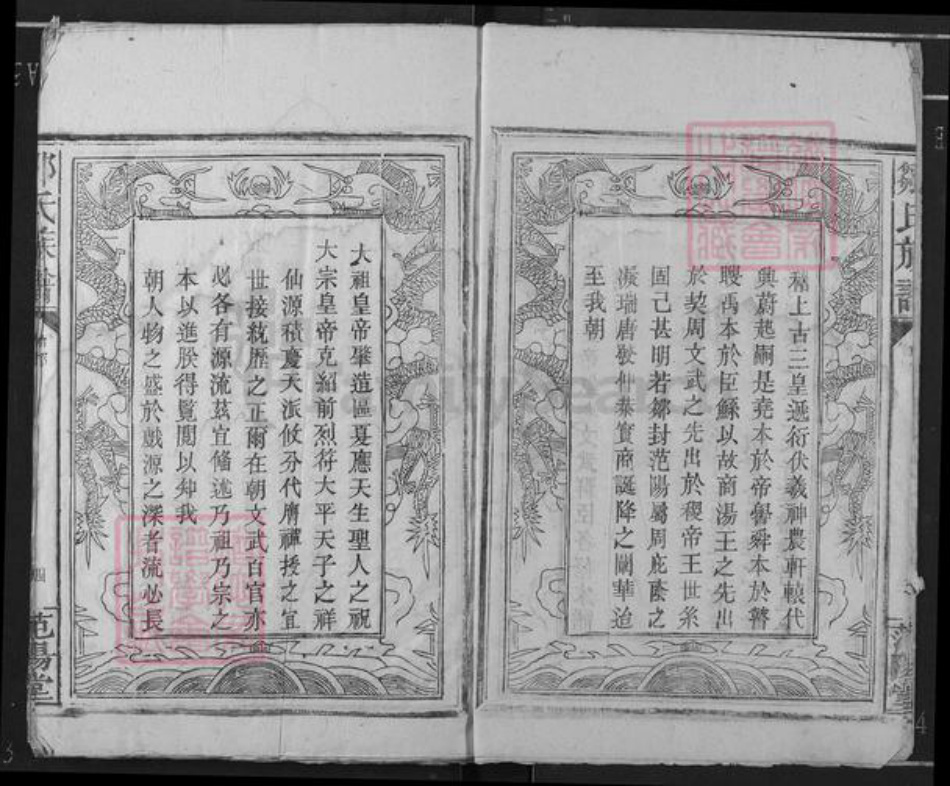 鄒氏族譜
稽上古三皇遞衍伏羲神農軒轅代
興蔚起嗣是堯本於帝嚳舜本於瞽
瞍禹本於臣鯀以故商湯王之先出
於契周文武之先出於稷帝王世系
固已甚明若鄒封范陽屬周庇蔭之
凝瑞唐發仲葉實商誕降之闡華迨
至我朝
太祖皇帝肇造區夏應天生聖人之祝
太宗皇帝克紹前烈符太平天子之祥
仙源積慶天派攸分代膺禪授之宜
世接統歷之正爾在朝文武百官亦
必各有源流茲宜俻述乃祖乃宗之
本以進朕得覽閱以知我
朝人物之盛於戲源之深者流必長
氏族譜
四
范陽堂